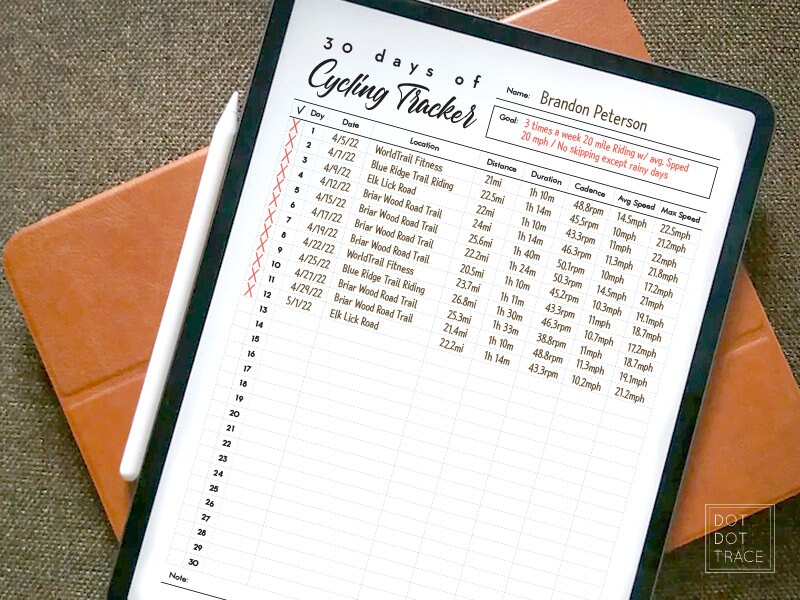 30 days of
Cycling Tracker
Name: Brandon Peterson
Goal: 3 times a week 20 mile Riding w/ avg. Spped
20 mph / No skipping except rainy days
√ Day Date Location Distance Duration Cadence Avg Speed Max Speed
X 1 4/5/22 WorldTrail Fitness 21mi 1h 10m 48.8rpm 14.5mph 22.5mph
X 2 4/7/22 Blue Ridge Trail Riding 22.5mi 1h 14m 45.5rpm 10mph 21.2mph
X 3 4/9/22 Elk Lick Road 22mi 1h 10m 43.3rpm 11mph 22mph
X 4 4/12/22 Briar Wood Road Trail 24mi 1h 14m 46.3rpm 11.3mph 21.8mph
X 5 4/15/22 Briar Wood Road Trail 25.6mi 1h 40m 50.1rpm 10mph 17.2mph
X 6 4/17/22 Briar Wood Road Trail 22.2mi 1h 24m 50.3rpm 14.5mph 21mph
X 7 4/19/22 Briar Wood Road Trail 20.5mi 1h 10m 45.2rpm 10.3mph 19.1mph
X 8 4/22/22 WorldTrail Fitness 23.7mi 1h 11m 43.3rpm 11mph 18.7mph
X 9 4/25/22 Blue Ridge Trail Riding 26.8mi 1h 30m 46.3rpm 10.7mph 17.2mph
X 10 4/27/22 Briar Wood Road Trail 25.3mi 1h 33m 38.8rpm 11mph 18.7mph
X 11 4/29/22 Briar Wood Road Trail 21.4mi 1h 10m 48.8rpm 11.3mph 19.1mph
X 12 5/1/22 Elk Lick Road 22.2mi 1h 14m 43.3rpm 10.2mph 21.2mph
13
14
15
16
17
18
19
20
21
22
23
24
25
26
27
28
29
30
Note:
DOT
DOT
TRACE